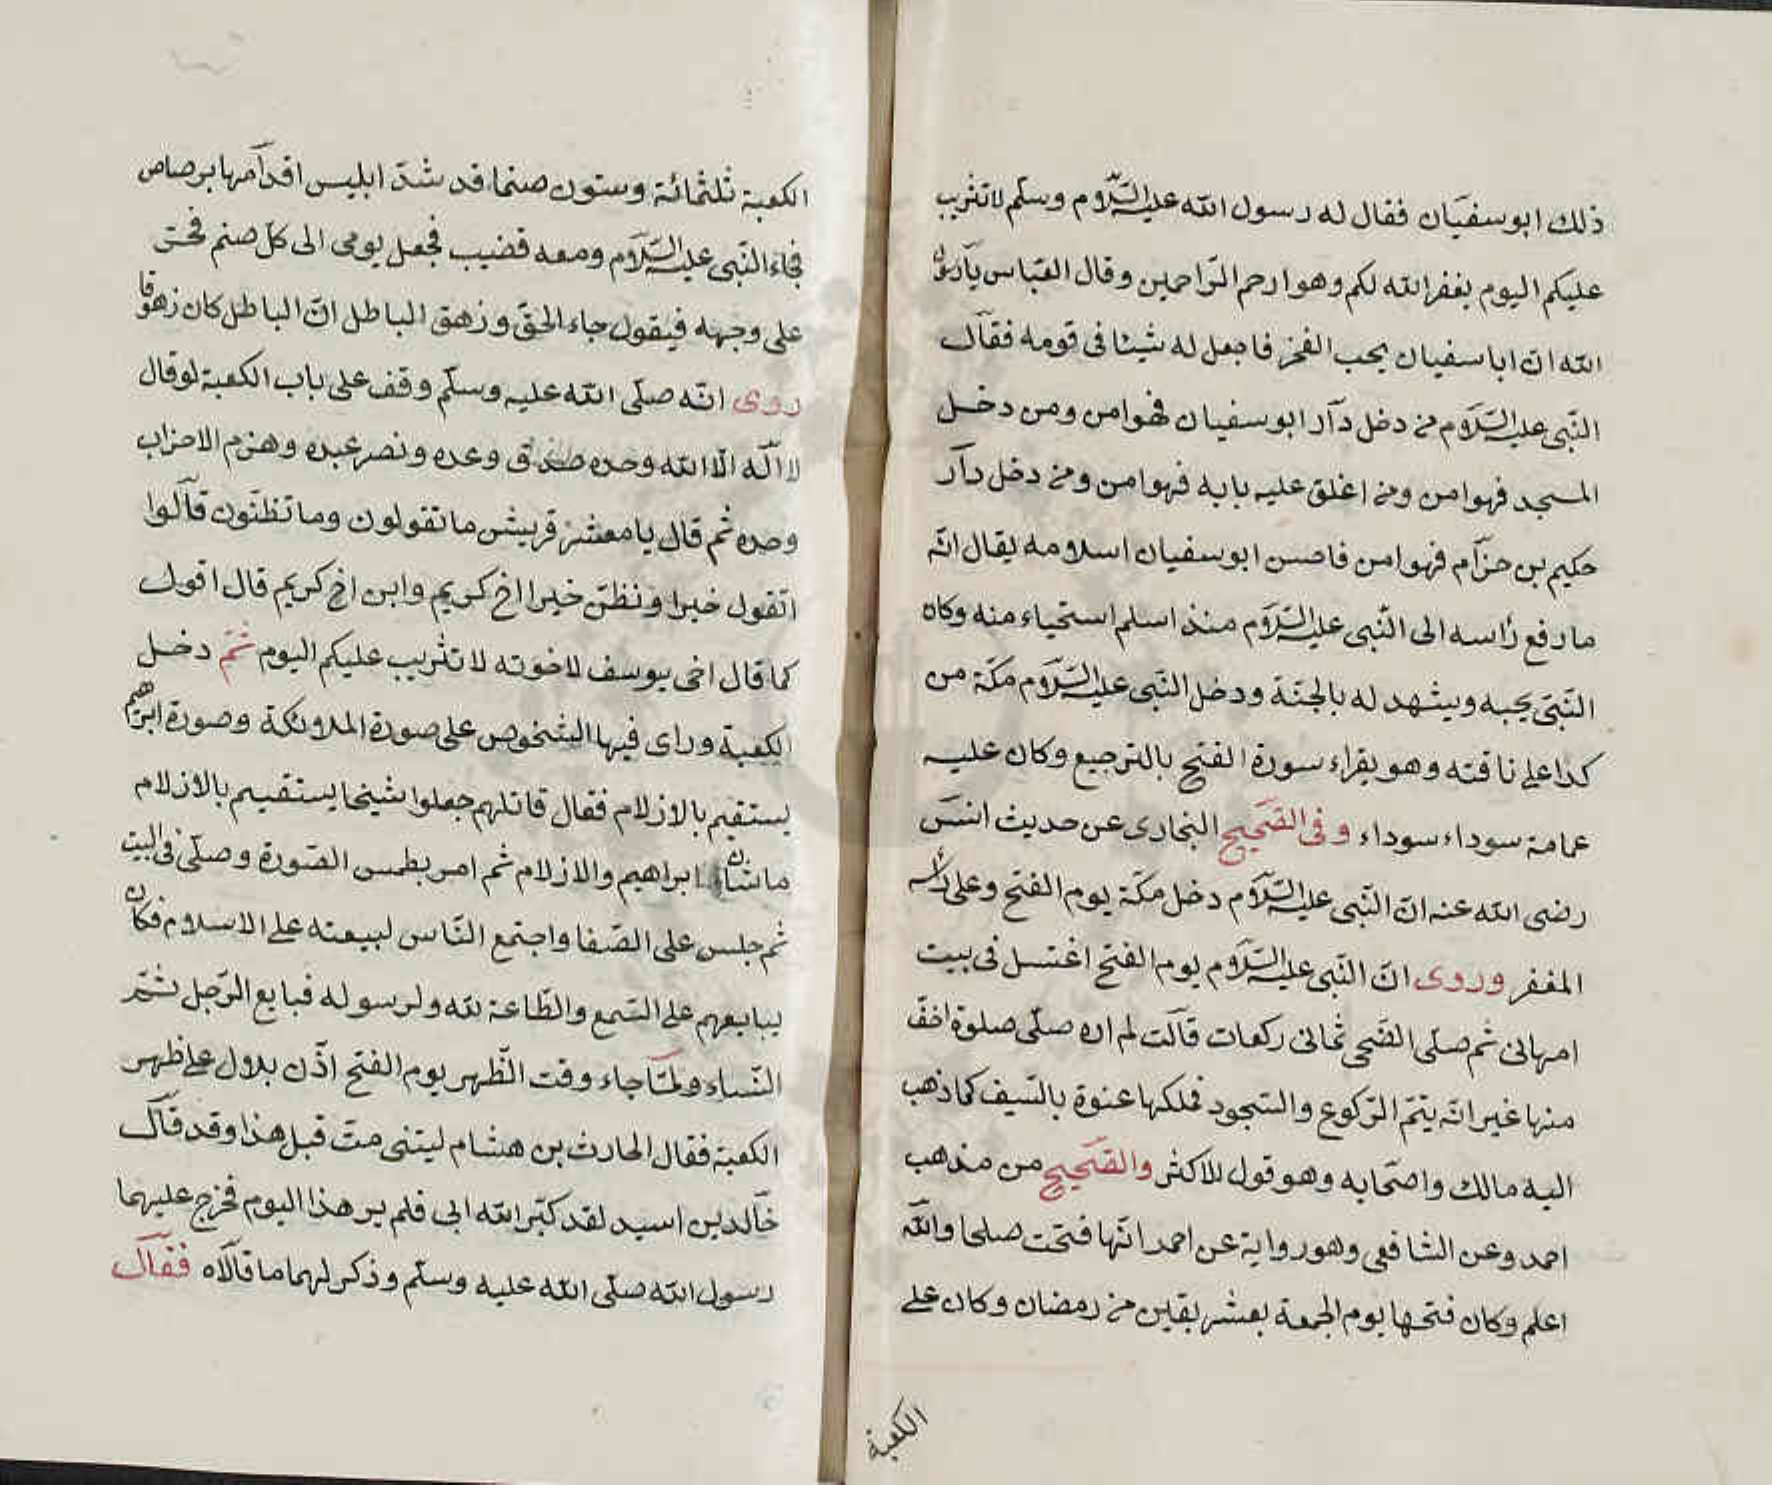 ذلك ابو سفيان فقال له رسول الله عليه السلام وسلم لا تثريب
عليكم اليوم يغفر الله لكم وهو ارحم الراحمين وقال العباس يا رسول
الله ان ابا سفيان يحب الفخر فاجعل له شيئا فى قومه فقال
النبى عليه السلام من دخل دار ابو سفيان فهو امن ومن دخل
المسجد فهو امن ومن اغلق عليه بابه فهو امن ومن دخل دار
حكيم بن حزام فهو امن فاحسن ابو سفيان اسلامه يقال انه
ما رفع رأسه الى النبى عليه السلام منذ اسلم استحياء منه وكان
النبى يحبه ويشهد له بالجنة ودخل النبى عليه السلام مكة من
كدا على ناقته وهو يقراء سورة الفتح بالترجيع وكان عليه
عمامة سوداء سوداء وفى الصحيح البخارى عن حديث انس
رضى الله عنه ان النبى عليه السلام دخل مكة يوم الفتح وعلى رأسه
المغفر وروى ان النبى عليه السلام يوم الفتح اغتسل فى بيت
ام هانى ثم صلى الضحى ثمانى ركعات قالت لم اره صلى صلوة اخف
منها غير انه يتم الركوع والسجود فملكها عنوة بالسيف كما ذهب
اليه مالك واصحابه وهو قول الاكثر والصحيح من مذهب
احمد وعن الشافعى وهو رواية عن احمد انها فتحت صلحا والله
اعلم وكان فتحها يوم الجمعة بعشر بقين من رمضان وكان على
الكعبة
الكعبة ثلثمائة وستون صنما قد شد ابليس اقدامها برصاص
فجاء النبى عليه السلام ومعه قضيب فجعل يومى الى كل صنم فخر
على وجهه فيقول جاء الحق وزهق الباطل ان الباطل كان زهوقا
روى انه صلى الله عليه وسلم وقف على باب الكعبة لوقال
لا اله الا الله وحده صدق وعده ونصر عبده وهزم الاحزاب
وحده ثم قال يا معشر قريش ما تقولون وما تظنون قالوا
اتقول خيرا ونظن خيرا اخ كريم وابن اخ كريم قال اقول
كما قال اخى يوسف لاخوته لا تثريب عليكم اليوم ثم دخل
الكعبة وراى فيها الشخوص على صورة الملائكة وصورة ابرهم
يستقيم بالازلام فقال قاتلهم جعلوا شيخا يستقيم بالازلام
ما شان ابراهيم والازلام ثم امر بطمس الصورة وصلى فى البيت
ثم جلس على الصفا واجتمع الناس لبيعته على الاسلام فكان
يبايعهم على السمع والطاعة لله ولرسوله فبايع الرجل ثم
النساء ولما جاء وقت الظهر يوم الفتح اذن بلال على ظهر
الكعبة فقال الحارث بن هشام ليتنى مت قبل هذا وقد قال
خالد بن اسيد لقد كبر الله ابى فلم ير هذا اليوم فخرج عليهما
رسول الله صلى الله عليه وسلم وذكر لهما ما قالاه فقال